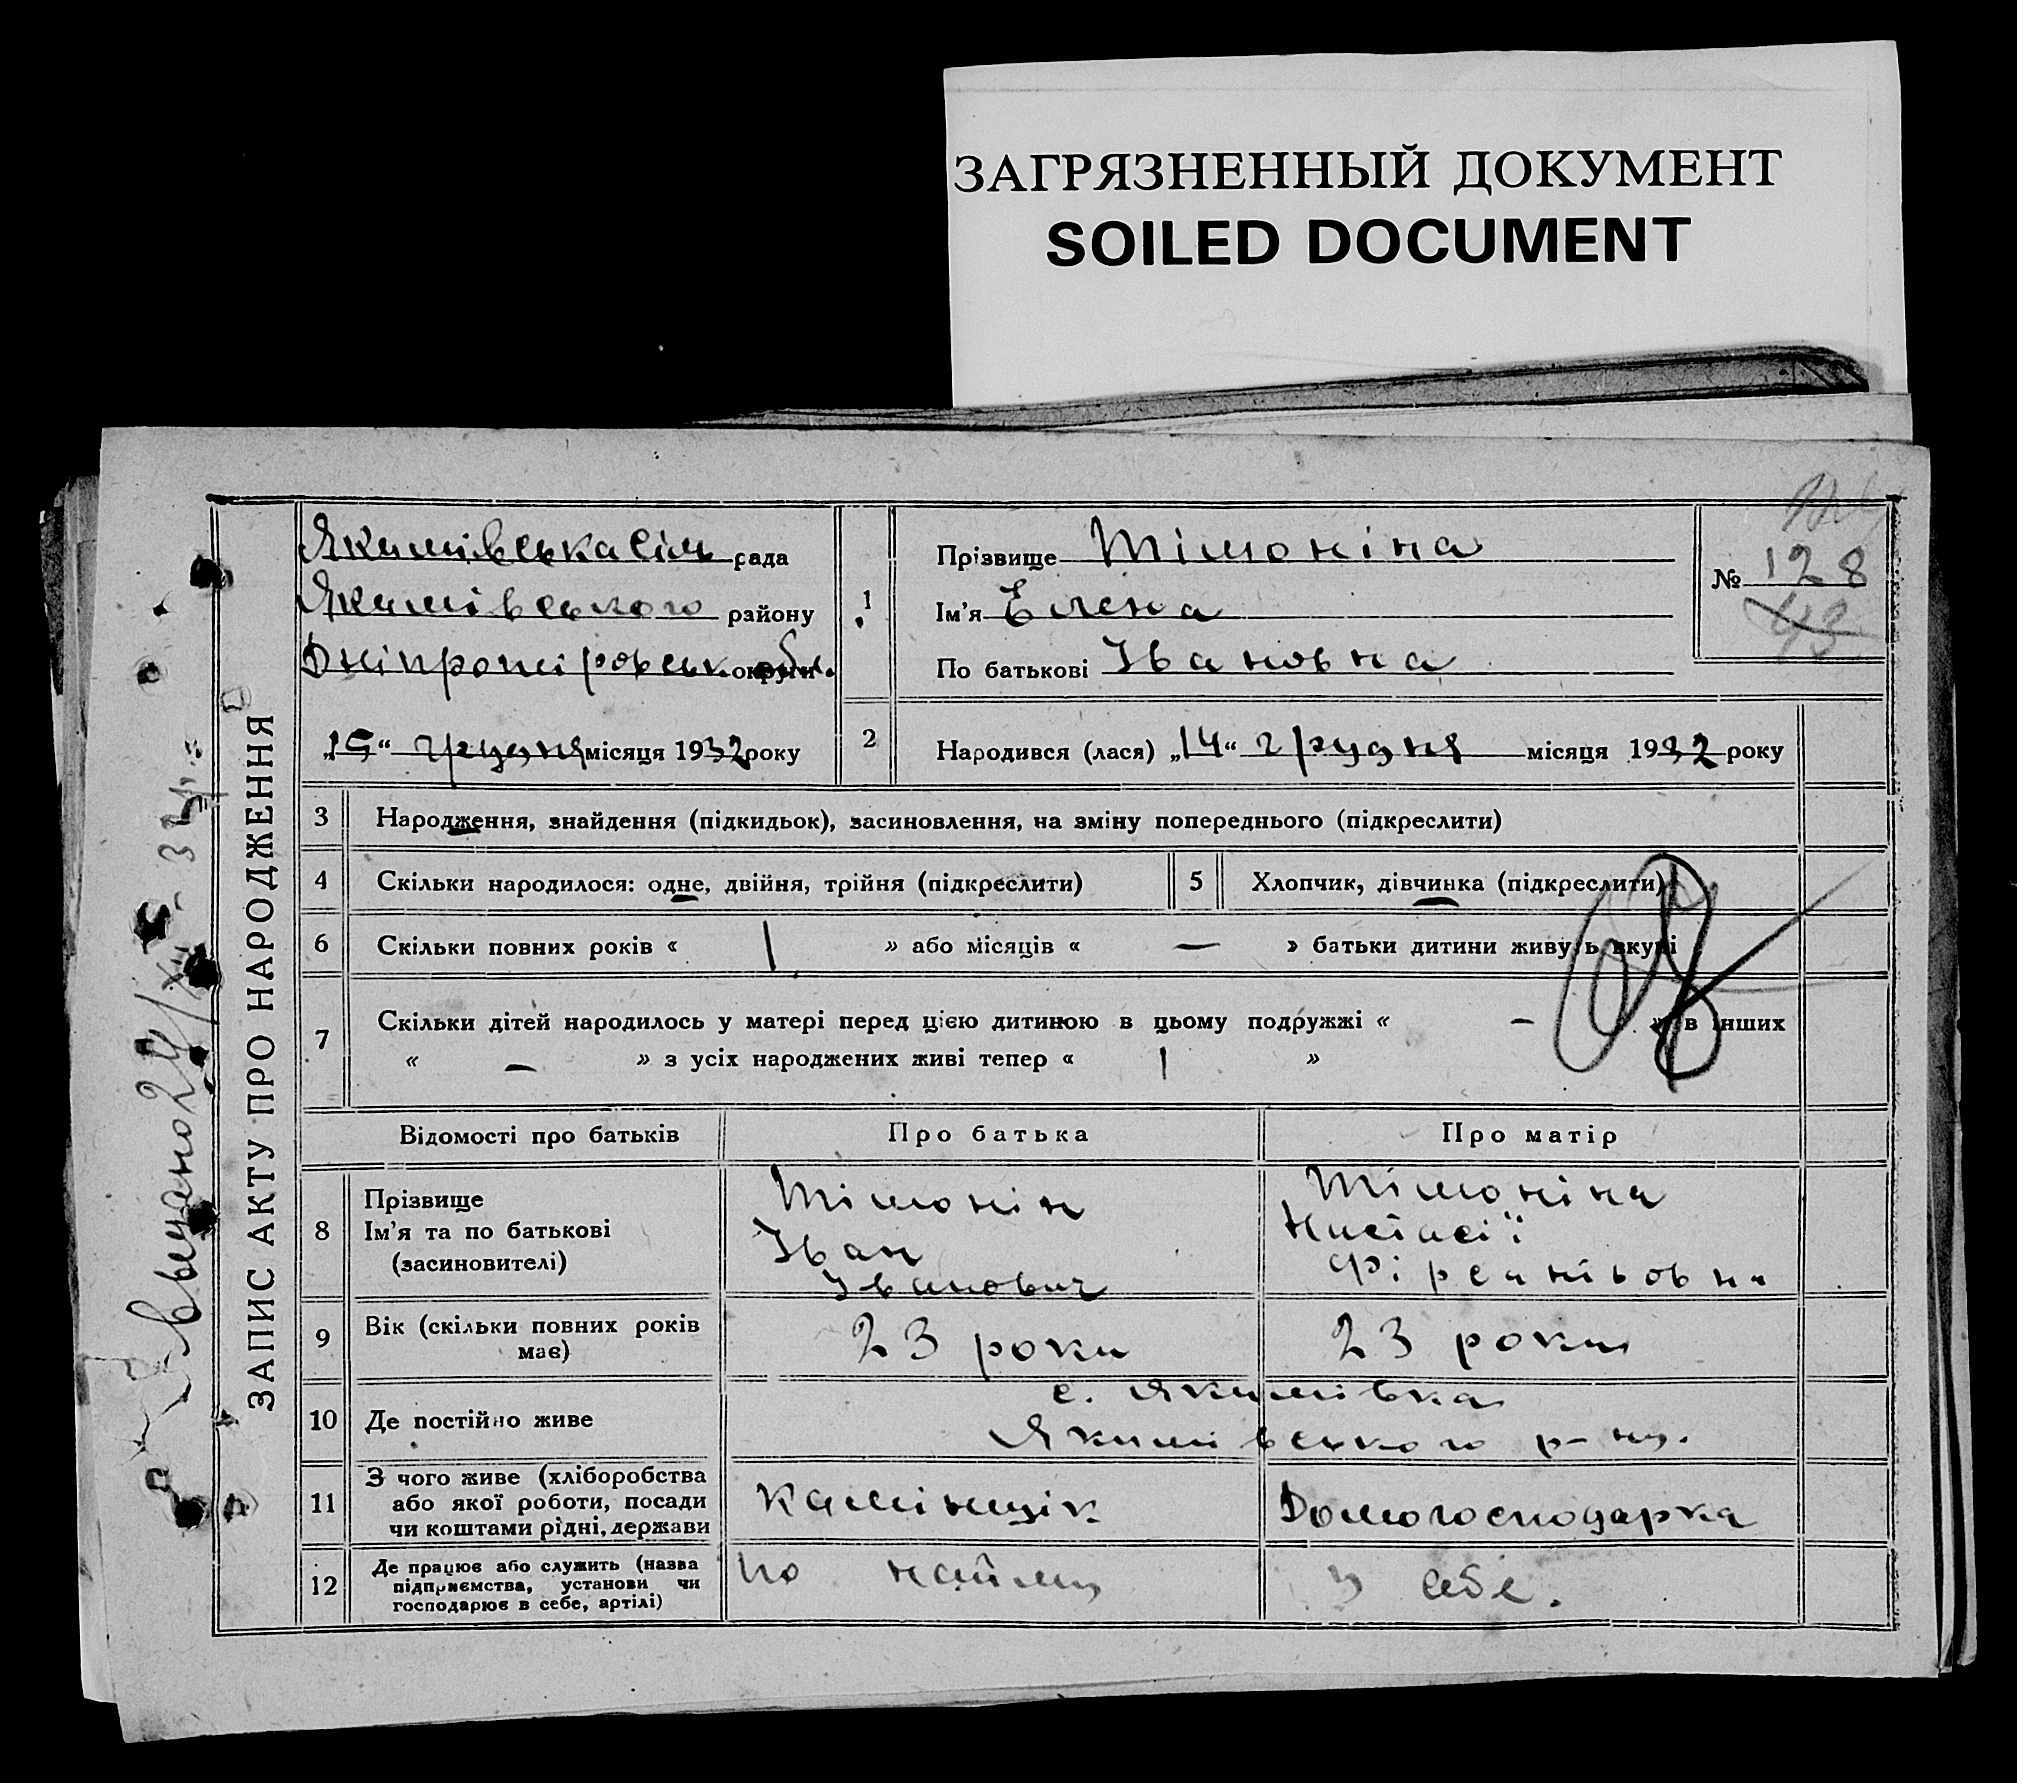 ЗАГРЯЗНЕННЫЙ ДОКУМЕНТ
SOILED DOCUMENT
ЗАПИС АКТУ ПРО НАРОДЖЕННЯ
Видано 24/XII-33р.
Якимівська сіль рада
Якимівського району
Дніпропіровськ. округи обл.
„15“ грудня місяця 1932 року
1
Прізвище Тімоніна
Ім'я Елена
По батькові Івановна
№ 128
43
2 Народився (лася) „14“ грудня місяця 1932 року
3 Народження, знайдення (підкидьок), засиновлення, на зміну попереднього (підкреслити)
4 Скільки народилося: одне, двійня, трійня (підкреслити) 5 Хлопчик, дівчинка (підкреслити)
6 Скільки повних років « 1 » або місяців « — » батьки дитини живуть вкупі
7 Скільки дітей народилось у матері перед цією дитиною в цьому подружжі « — » в інших
« — » з усіх народжених живі тепер « 1 »
Відомості про батьків Про батька Про матір
8 Прізвище
Ім'я та по батькові
(засиновителі)
Тімонін
Іван
Іванович
Тімоніна
9 Вік (скільки повних років
має)
23 роки
23 роки
10 Де постійно живе
с. Якимівка
Якимівського р-ну.
11 З чого живе (хліборобства
або якої роботи, посади
чи коштами рідні, держави
Камінщік
Домогосподарка
12 Де працює або служить (назва
підприємства, установи чи
господарює в себе, артілі)
по найму
у себе.